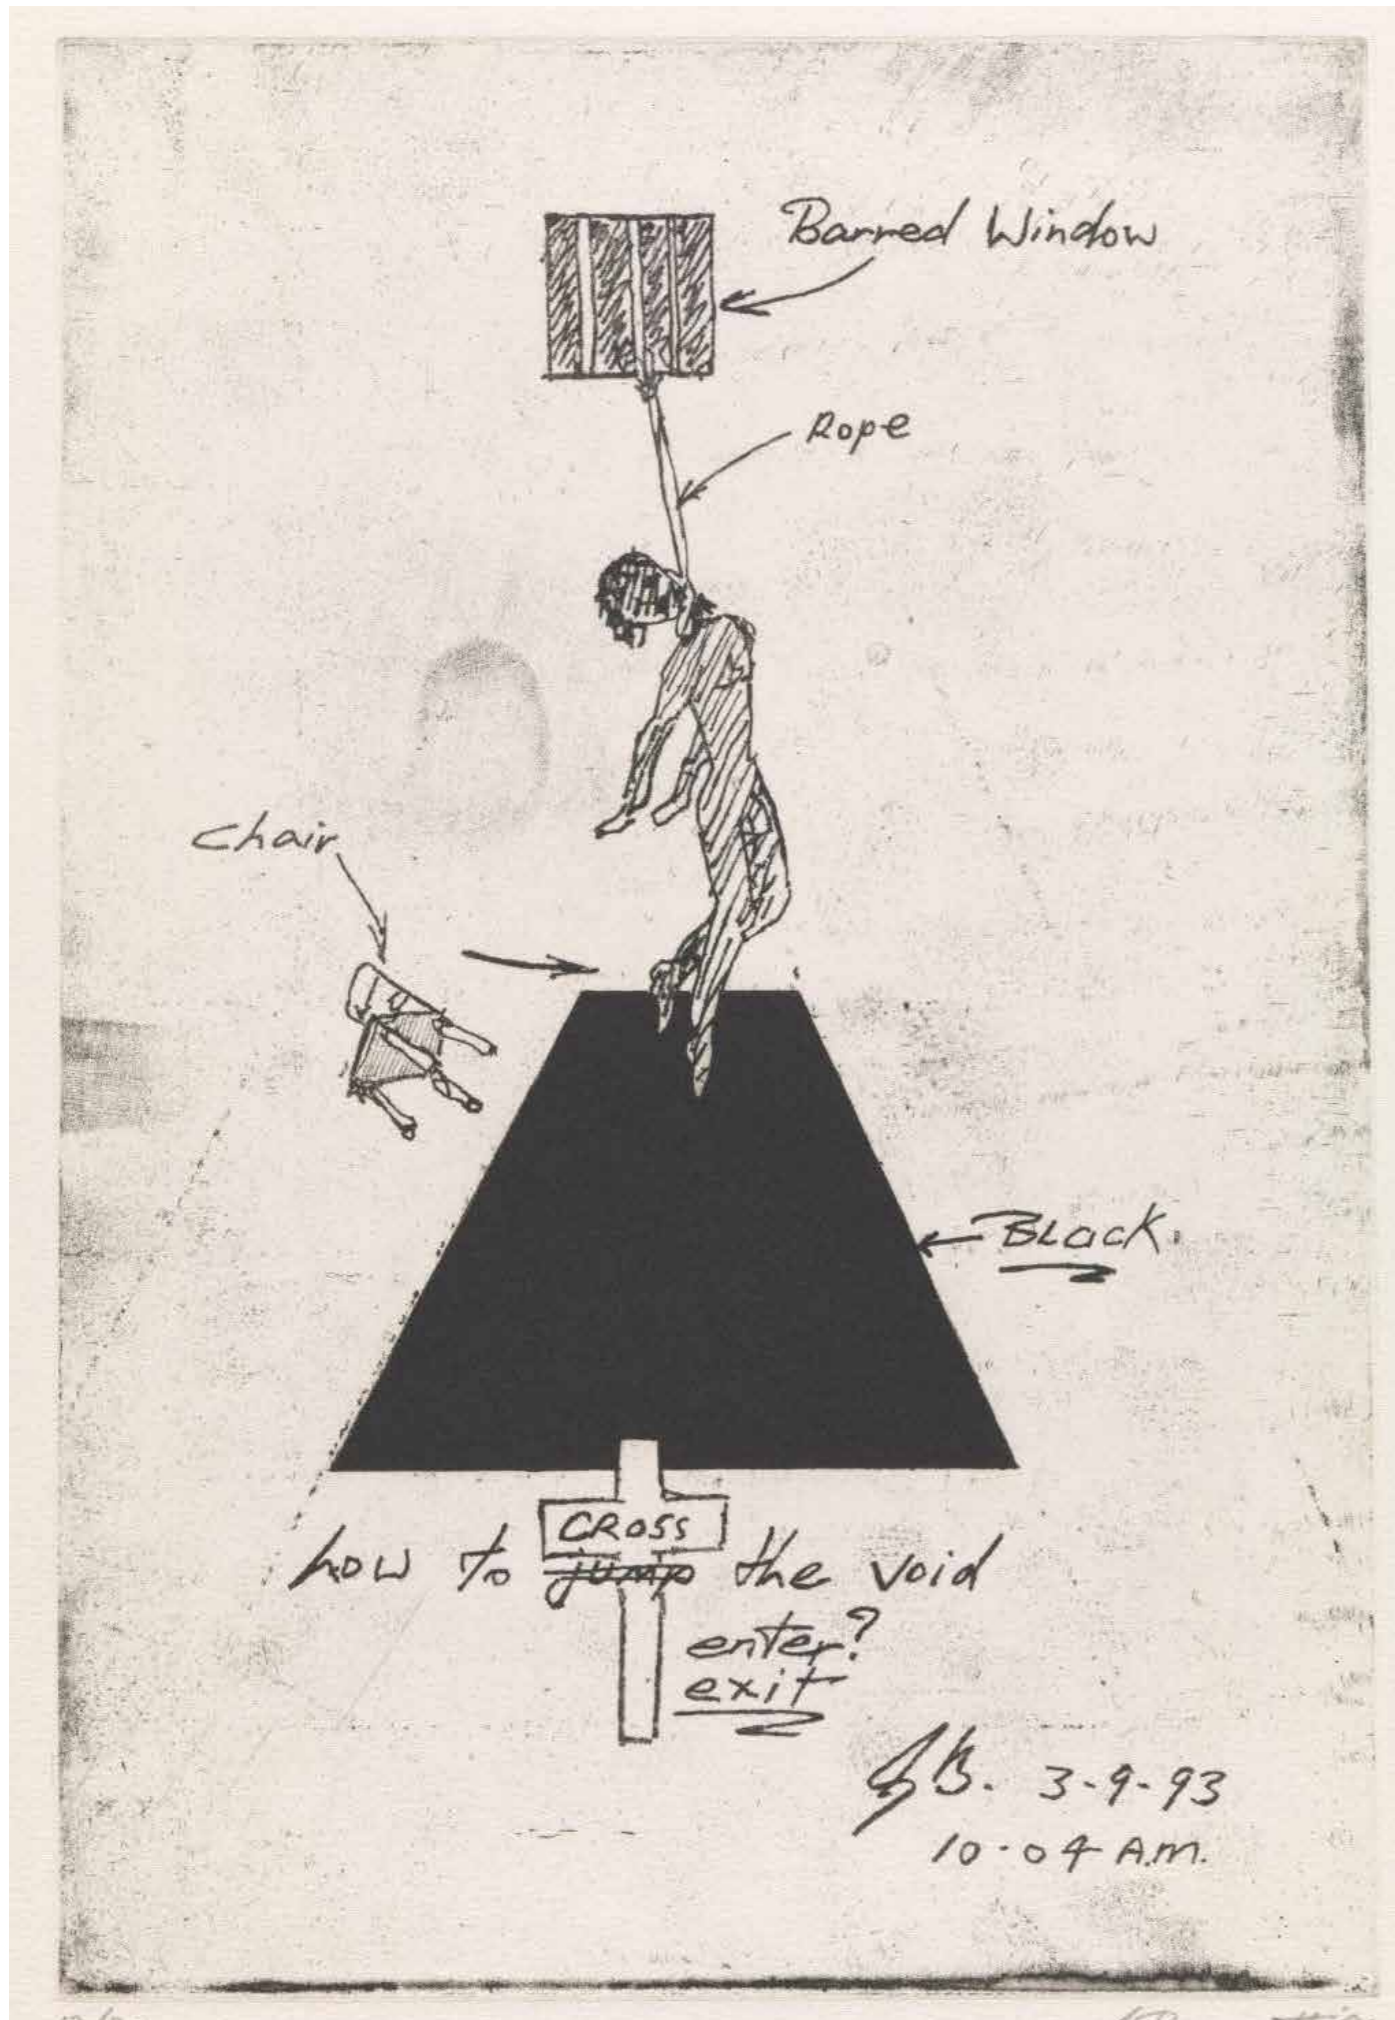 Barred Window
Rope
Chair
Black.
CROSS
how to jump the void
enter?
exit
GB. 3-9-93
10-04 A.M.